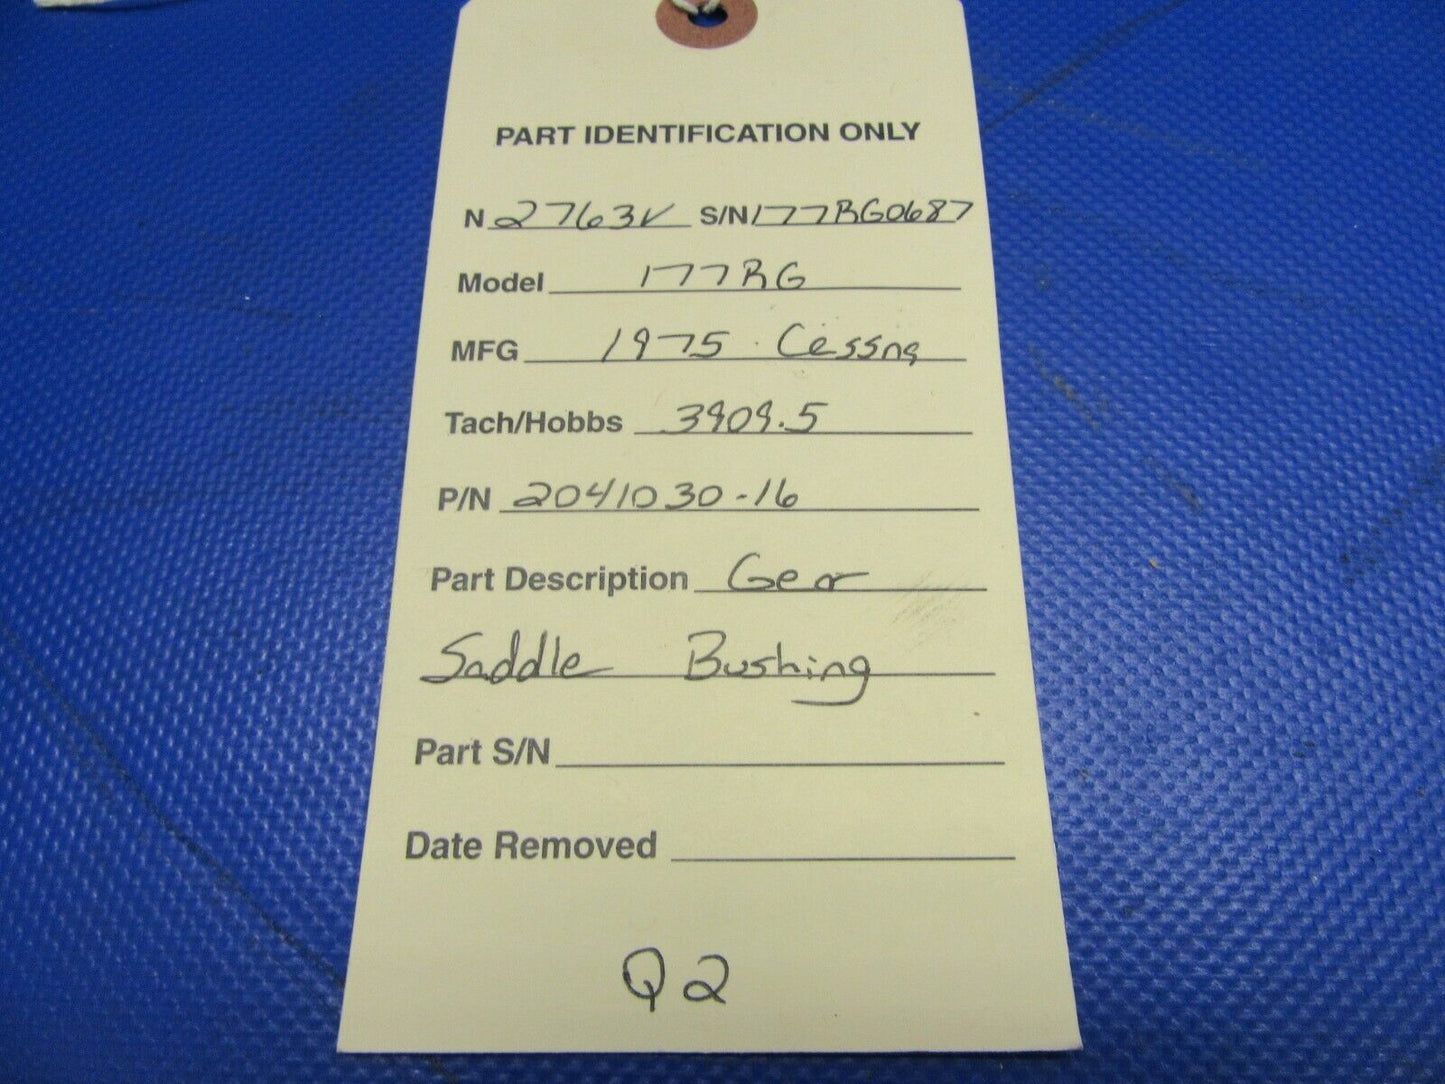 PART IDENTIFICATION ONLY
N 2763V S/N 177RG0687
Model 177RG
MFG 1975 Cessna
Tach/Hobbs 3909.5
P/N 2041030-16
Part Description Gear
Saddle Bushing
Part S/N
Date Removed
Q2